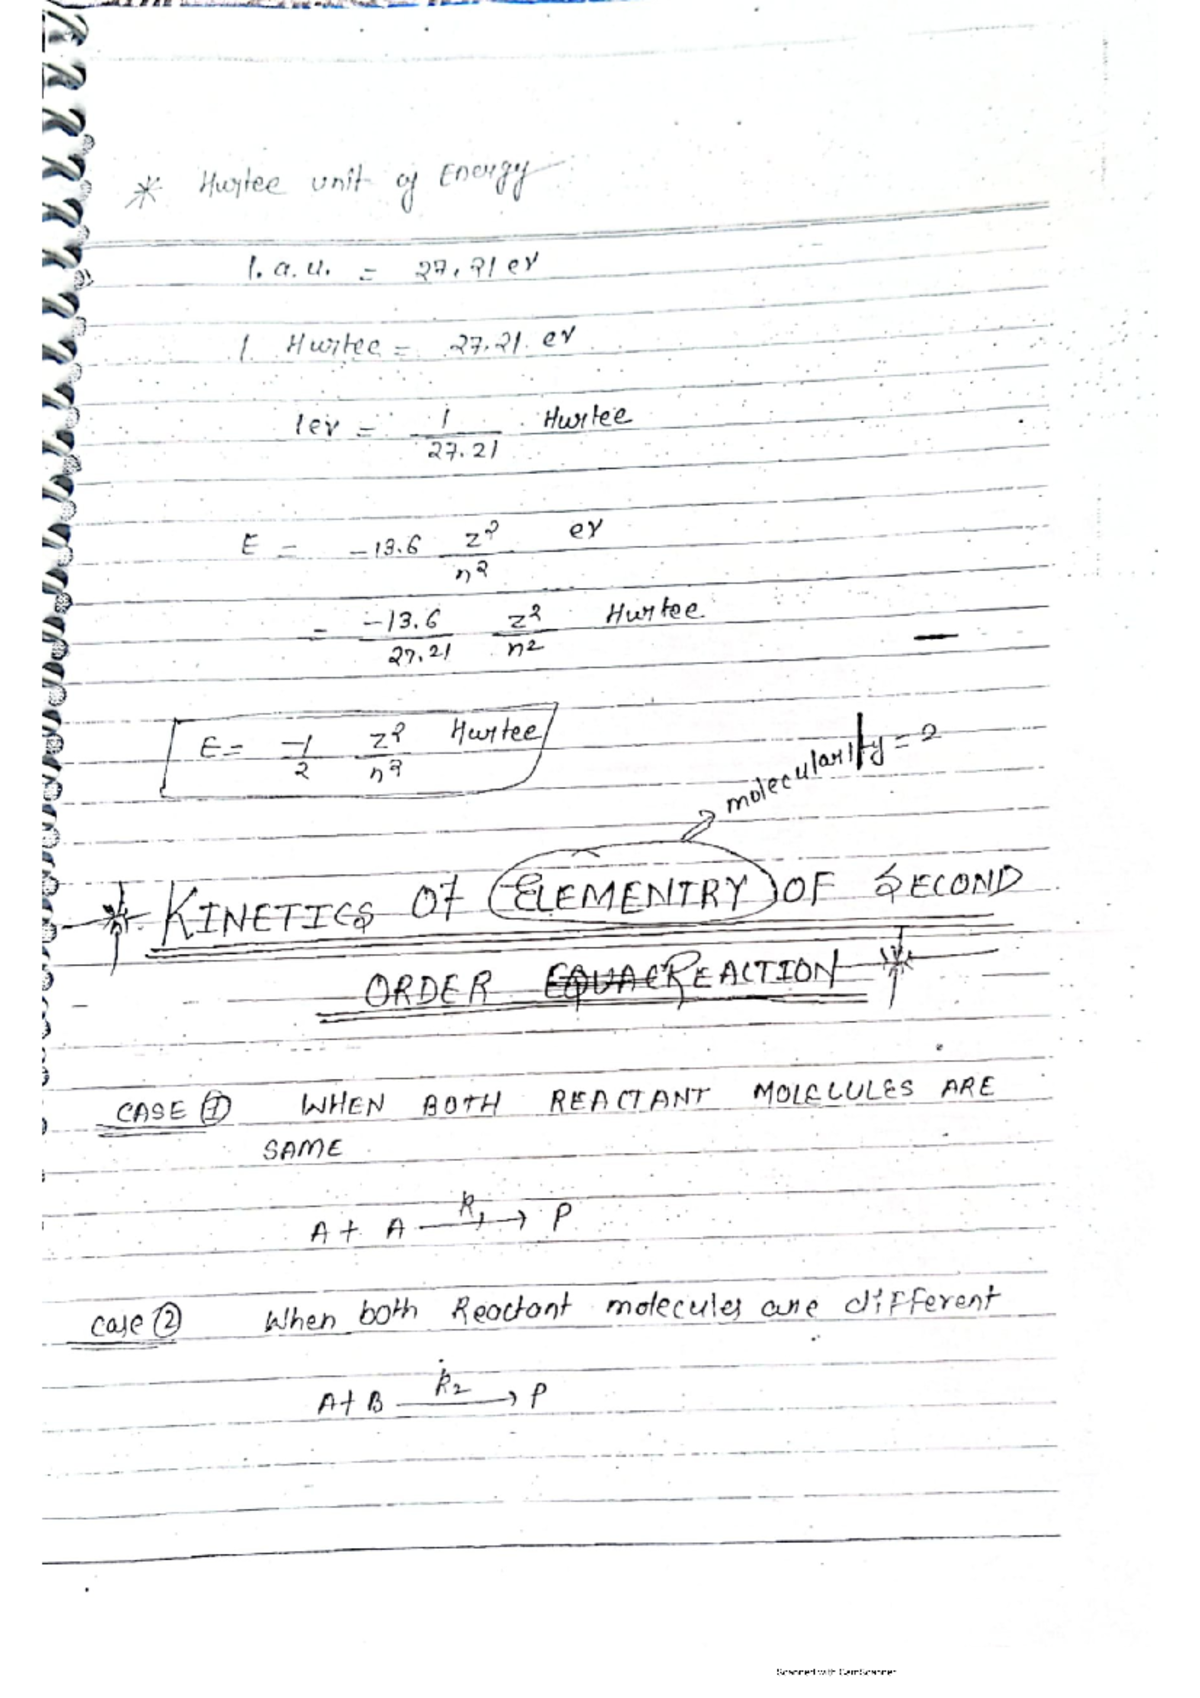 * Hurtee unit of Energy
1. a.u. = 27.21 ev
1 Hurtee = 27.21 ev
1ev = 1/27.21 Hurtee
E = -13.6 z²/n² ev
= -13.6/27.21 z²/n² Hurtee
E = -1/2 z²/n² Hurtee
molecularity = 2
* KINETICS Of ELEMENTRY OF SECOND
ORDER EQUAC REACTION *
CASE ① WHEN BOTH REACTANT MOLECULES ARE
SAME
A + A k₁ → P
Case ② When both Reactant molecules are different
A + B k₂ → P
Scanned with CamScanner